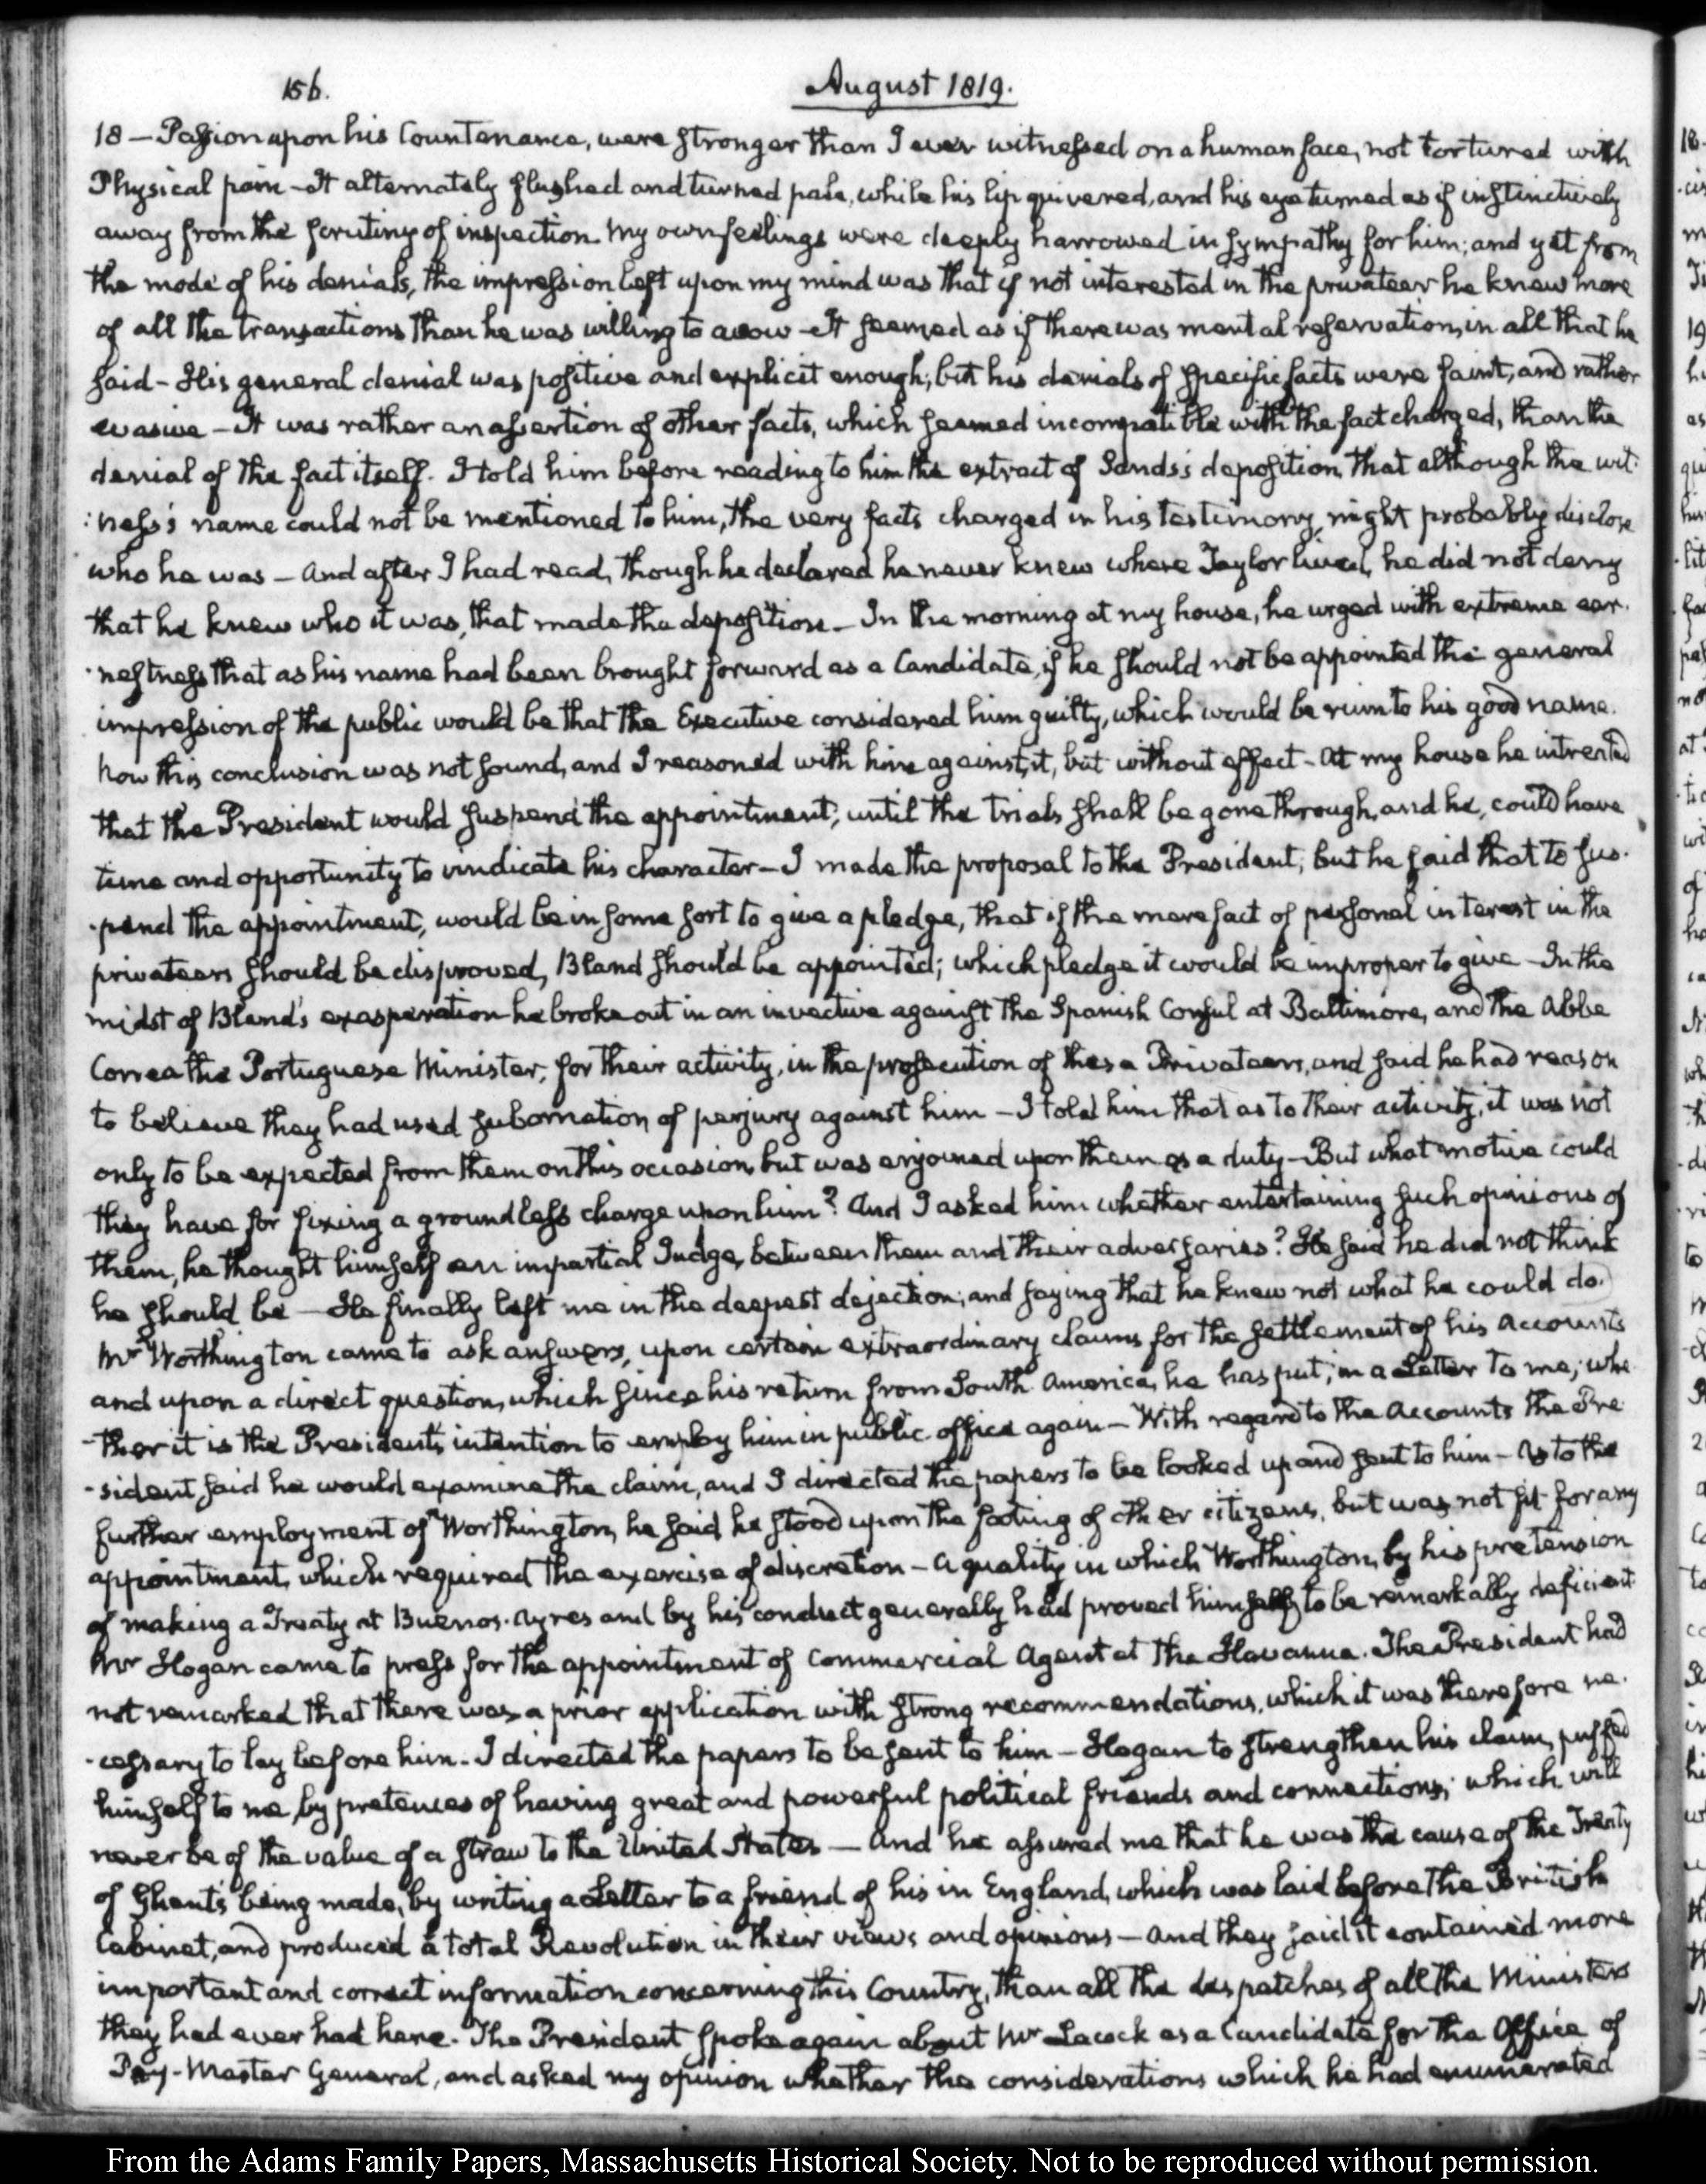 156.
August 1819.
18 — Passion upon his Countenance, were stronger than I ever witnessed on a human face, not tortured with
Physical pain - It alternately flushed and turned pale, while his lip quivered, and his eye turned as if instinctively
away from the scrutiny of inspection. My own feelings were deeply harrowed in sympathy for him; and yet from
the mode of his denials, the impression left upon my mind was that if not interested in the privateer he knew more
of all the transactions than he was willing to avow - It seemed as if there was mental reservation, in all that he
said - His general denial was positive and explicit enough; but his denials of specific facts were faint, and rather
evasive - It was rather an assertion of other facts, which seemed incompatible with the fact charged, than the
denial of the fact itself. I told him before reading to him the extract of Sands's deposition, that although the wit:
:ness's name could not be mentioned to him, the very facts charged in his testimony, might probably disclose
who he was - And after I had read, though he declared he never knew where Taylor lived, he did not deny
that he knew who it was, that made the deposition - In the morning at my house, he urged with extreme ear-
-nestness that as his name had been brought forward as a Candidate, if he should not be appointed the general
impression of the public would be that the Executive considered him guilty, which would be ruin to his good name.
Now this conclusion was not sound, and I reasoned with him against it, but without effect - At my house he intreated
that the President would suspend the appointment; until the trials shall be gone through, and he, could have
time and opportunity to vindicate his character - I made the proposal to the President; but he said that to sus-
-pend the appointment, would be in some sort to give a pledge, that if the mere fact of personal interest in the
privateers should be disproved, Bland should be appointed; which pledge it would be improper to give - In the
midst of Bland's exasperation he broke out in an invective against the Spanish Consul at Baltimore, and the Abbe
Correa the Portuguese Minister, for their activity, in the prosecution of these Privateers, and said he had reason
to believe they had used subornation of perjury against him - I told him that as to their activity, it was not
only to be expected from them on this occasion, but was enjoined upon them as a duty - But what motive could
they have for fixing a groundless charge upon him? And I asked him whether entertaining such opinions of
them, he thought himself an impartial Judge, between them and their adversaries? He said he did not think
he should be - He finally left me in the deepest dejection; and saying that he knew not what he could do.
Mr Worthington came to ask answers, upon certain extraordinary claims for the settlement of his Accounts
and upon a direct question, which since his return from South America, he has put, in a Letter to me; whe
-ther it is the President's intention to employ him in public office again - With regard to the Accounts the Pre
-sident said he would examine the claim, and I directed the papers to be looked up and sent to him - As to the
further employment of Worthington, he said he stood upon the footing of other citizens, but was not fit for any
appointment, which required the exercise of discretion - a quality in which Worthington, by his pretension
of making a Treaty at Buenos-Ayres and by his conduct generally had proved himself to be remarkably deficient
Mr Hogan came to press for the appointment of Commercial Agent at the Havanna. The President had
not remarked that there was a prior application with strong recommendations, which it was therefore ne-
-cessary to lay before him - I directed the papers to be sent to him - Hogan to strengthen his claim, puffed
himself to me, by pretences of having great and powerful political friends and connections; which will
never be of the value of a straw to the United States - And he assured me that he was the cause of the Treaty
of Ghent's being made, by writing a Letter to a friend of his in England, which was laid before the British
Cabinet, and produced a total Revolution in their views and opinions - And they said it contained more
important and correct information concerning this Country, than all the despatches of all the Ministers
they had ever had here. The President spoke again about Mr Lacock as a Candidate for the Office of
Pay-Master General, and asked my opinion whether the considerations which he had enumerated
From the Adams Family Papers, Massachusetts Historical Society. Not to be reproduced without permission.